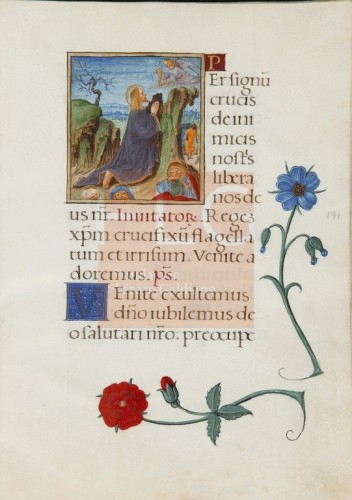 Per signu͞
crucis
de ini
micis
nost͛s
libera
nos de
us nr͞. Inuitatore. Rege͞
xp͞m crucifixu͞ flagella
tum et irrisum. Venite a
doremus. ps.
VEnite exultemus
dn͞o iubilemus de
o salutari nr͞o. preocupe
191